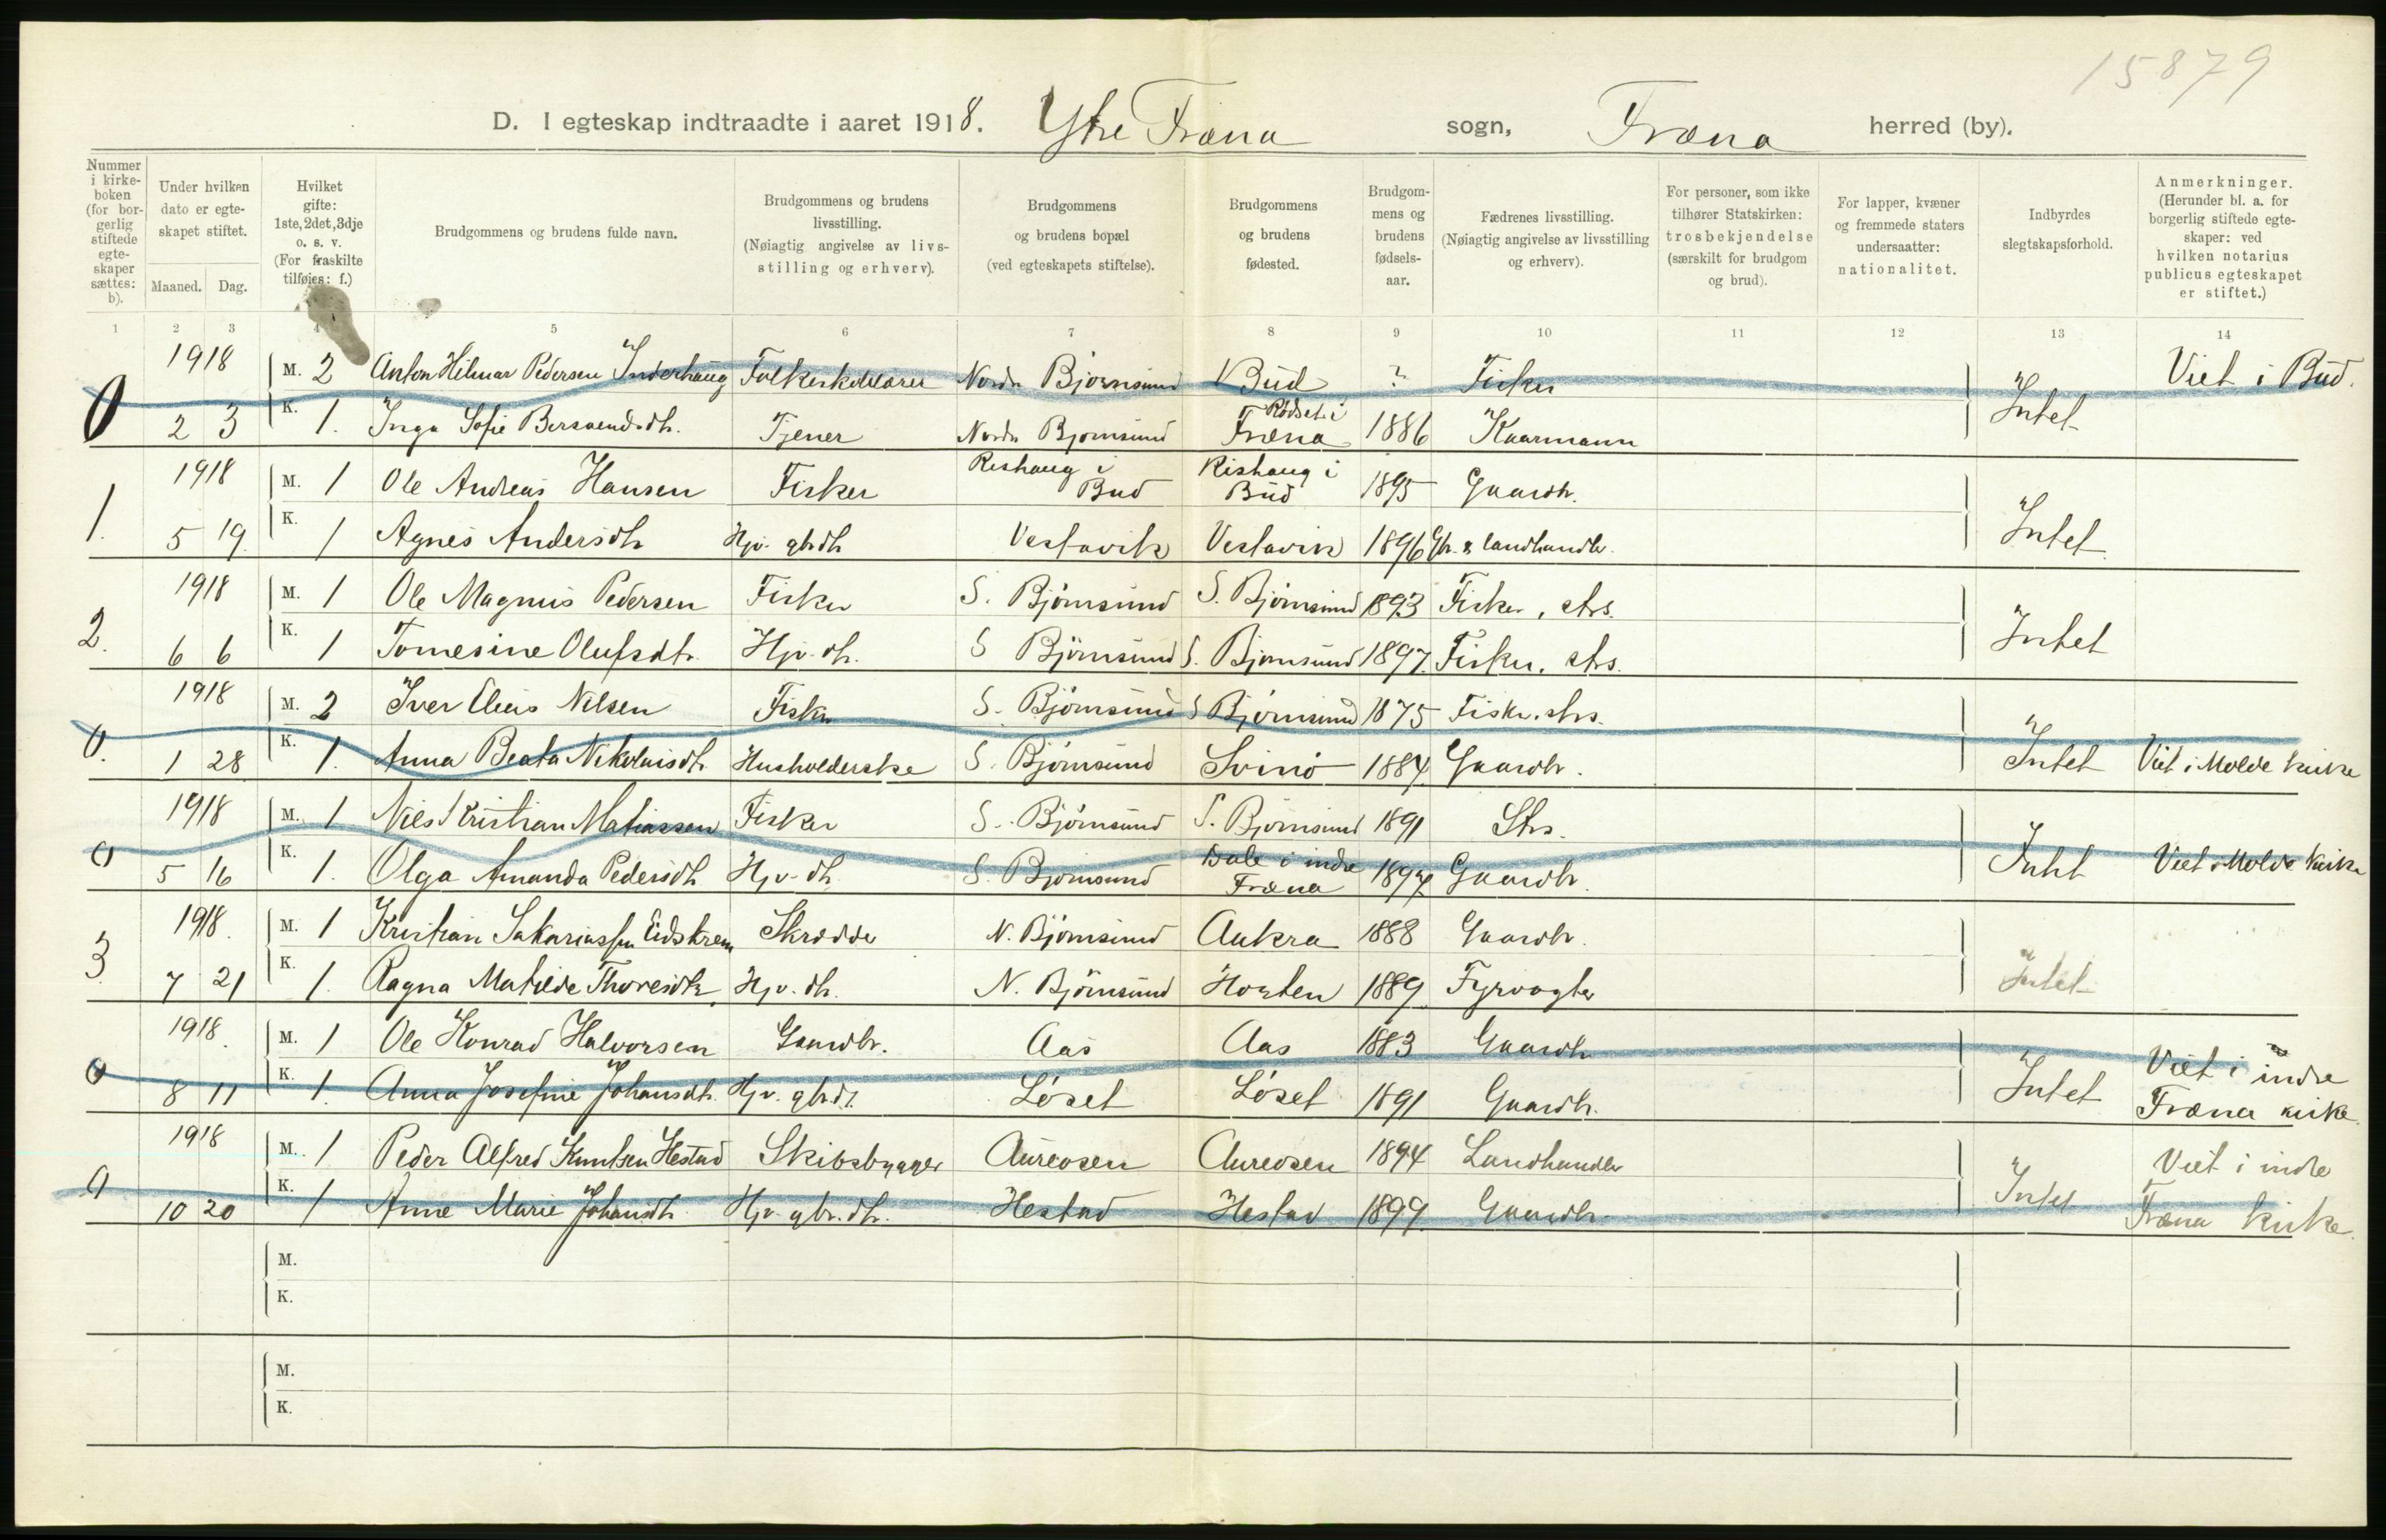 15879
D. I egteskap indtraadte i aaret 1918. Ytre Fræna sogn, Fræna herred (by).
Nummer i kirkeboken (for borgerlig stiftede egteskaper sættes: b).
Under hvilken dato er egteskapet stiftet.
Maaned. Dag.
Hvilket gifte: 1ste, 2det, 3dje o. s. v. (For fraskilte tilføies: f.)
Brudgommens og brudens fulde navn.
Brudgommens og brudens livsstilling. (Nøiagtig angivelse av livsstilling og erhverv).
Brudgommens og brudens bopæl (ved egteskapets stiftelse).
Brudgommens og brudens fødested.
Brudgommens og brudens fødselsaar.
Fædrenes livsstilling. (Nøiagtig angivelse av livsstilling og erhverv).
For personer, som ikke tilhører Statskirken: trosbekjendelse (særskilt for brudgom og brud).
For lapper, kvæner og fremmede staters undersaatter: nationalitet.
Indbyrdes slegtskapsforhold.
Anmerkninger. (Herunder bl. a. for borgerlig stiftede egteskaper: ved hvilken notarius publicus egteskapet er stiftet.)
1 2 3 4 5 6 7 8 9 10 11 12 13 14
1918 M. 2 Anton Hilmar Pedersen Inderhaug Folkeskolelærer Nordr Bjørnsund Bud ? Fisker Viet i Bud.
0 2 3 K. 1. Inga Sofie Bersvendsdtr. Tjener Nordr Bjørnsund Rødset i Fræna 1886 Kaarmann Intet
1918 M. 1 Ole Andreas Hansen Fisker Rishaug i Bud Rishaug i Bud 1895 Gaardbr.
1. 5 19. K. 1 Agnes Andersdtr Hjv. gbrdtr Vestavik Vestavik 1896 Gbr. & landhandlr. Intet
1918 M. 1 Ole Magnus Pedersen Fisker S. Bjørnsund S. Bjørnsund 1893 Fisker, strs.
2. 6 6 K. 1 Tomesine Olufsdtr. Hjv. dtr. S Bjørnsund S. Bjørnsund 1897. Fisker. strs. Intet
1918 M. 2 Iver Elias Nilsen Fisker S. Bjørnsund S Bjørnsund 1875 Fisker. strs.
0. 1 28 K. 1. Anna Beata Nikolaisdtr Husholderske S. Bjørnsund Svinø 1884. Gaardbr. Intet Viet i Molde kirke
1918 M. 1 Nils Kristian Matiassen Fisker S. Bjørnsund S. Bjørnsund 1891 Strs.
0 5 16 K. 1. Olga Amanda Pedersdtr Hjv. dtr. S. Bjørnsund Dale i indre Fræna 1897 Gaardbr. Intet Viet i Molde kirke
1918. M. 1 Kristian Sakariassen Eidskrem Skrædder N. Bjørnsund Aukra 1888 Gaardbr.
3. 7 21 K. 1. Ragna Matilde Thoresdtr. Hjv. dtr. N. Bjørnsund Horten 1889. Fyrvogter Intet
1918. M. 1 Ole Konrad Halvorsen Gaardbr. Aas Aas 1883 Gaardbr
0 8 11 K. 1. Anna Josefine Johansdtr. Hjv. gbrdt. Løset Løset 1891 Gaardbr. Intet Viet i indre Fræna kirke.
1918 M. 1 Peder Alfred Knutsen Hestad Skibsbygger Aureosen Aureosen 1894 Landhandler
0 10 20 K. 1 Anne Marie Johansdtr Hjv. gbr. dtr. Hestad Hestad 1899. Gaardbr. Intet Viet i indre Fræna kirke.
M.
K.
M.
K.